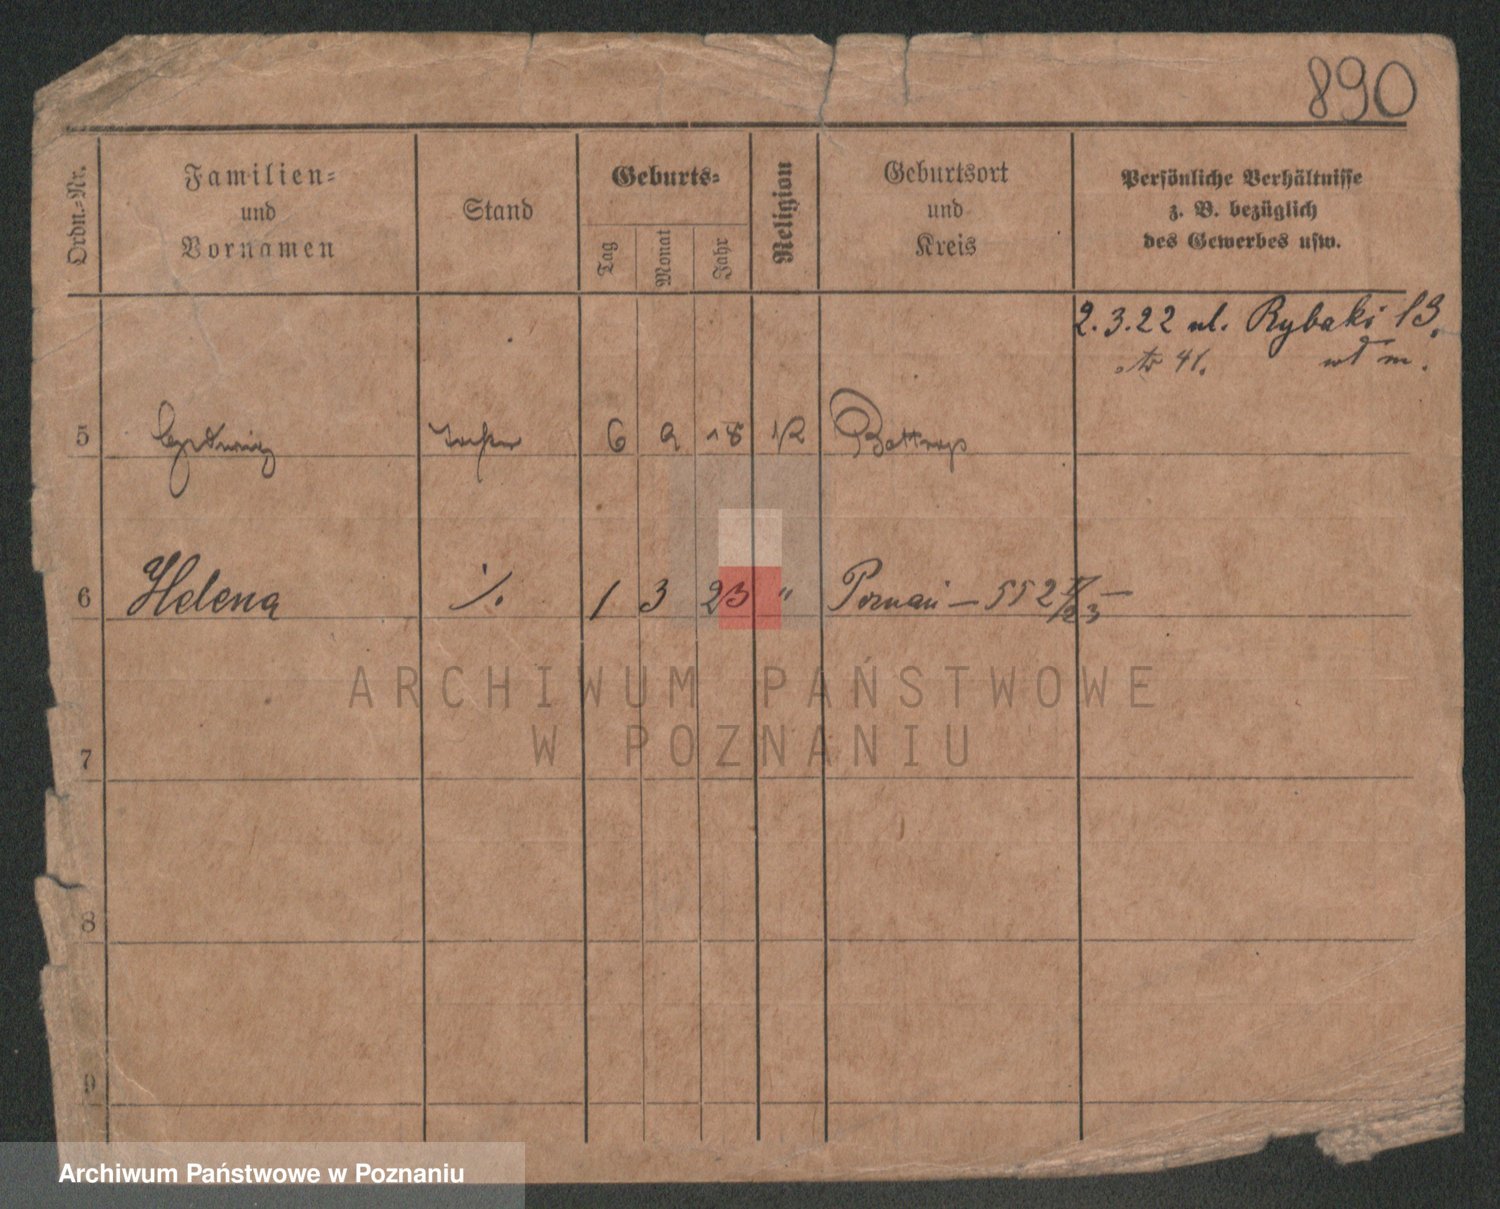 890
Ordn.-Nr.
Familien-
und
Vornamen
Stand
Geburts-
Tag
Monat
Jahr
Religion
Geburtsort
und
Kreis
Persönliche Verhältnisse
z. B. bezüglich
des Gewerbes usw.
2.3.22 ul. Rybaki 13.
41. m.
5 6 9 18 Bottrop
6 Helena ·/. 1 3 23 " Poznań – 552
7
8
9
ARCHIWUM PAŃSTWOWE
W POZNANIU
Archiwum Państwowe w Poznaniu